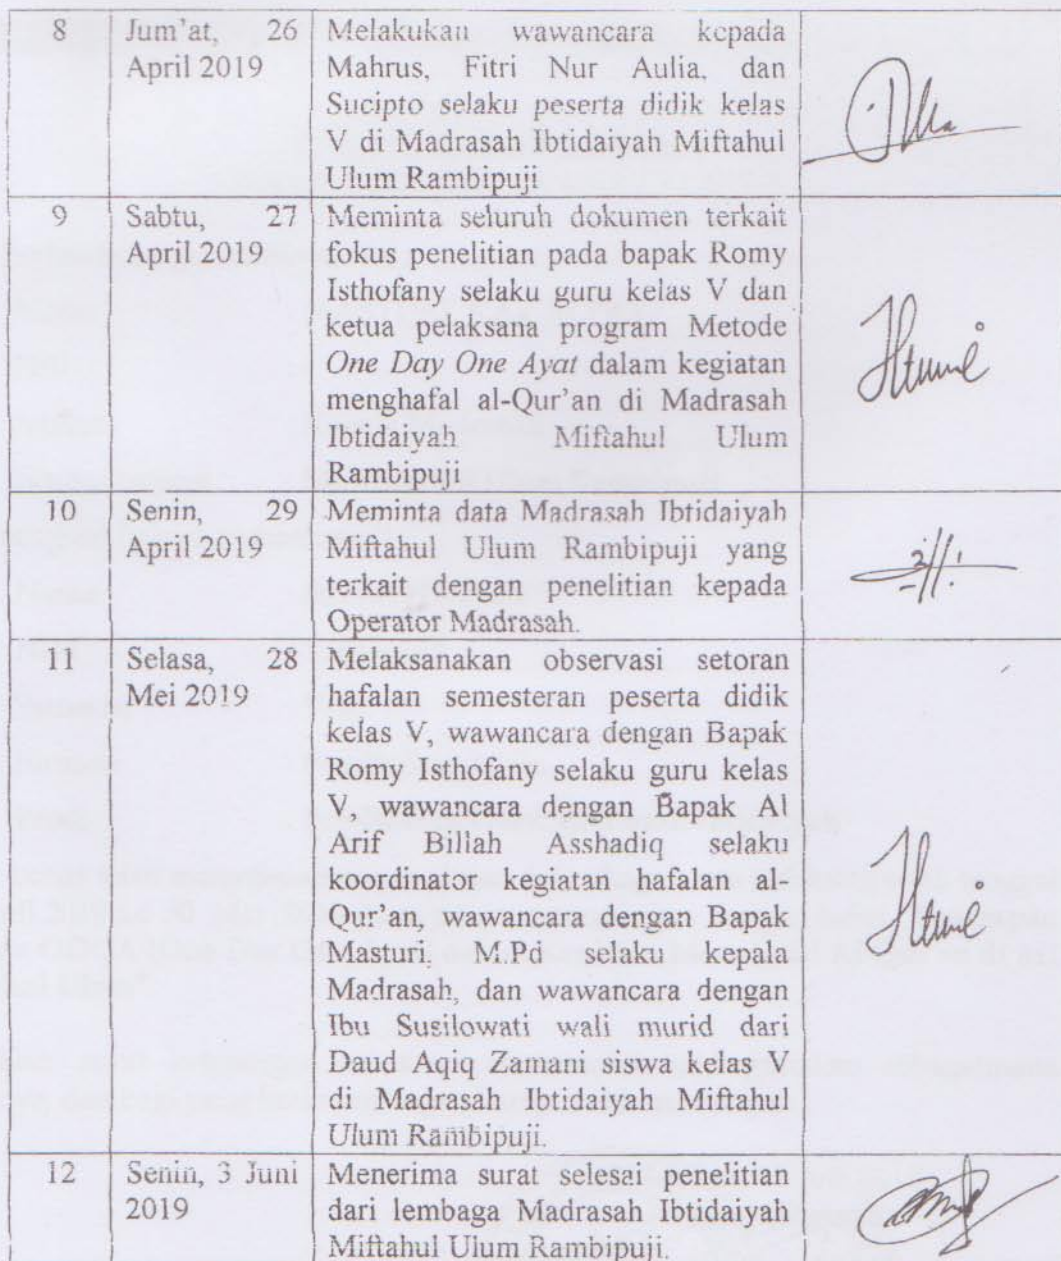 8 Jum'at, 26 Melakukan wawancara kepada
April 2019 Mahrus, Fitri Nur Aulia, dan
Sucipto selaku peserta didik kelas
V di Madrasah Ibtidaiyah Miftahul
Ulum Rambipuji
9 Sabtu, 27 Meminta seluruh dokumen terkait
April 2019 fokus penelitian pada bapak Romy
Isthofany selaku guru kelas V dan
ketua pelaksana program Metode
One Day One Ayat dalam kegiatan
menghafal al-Qur'an di Madrasah
Ibtidaiyah Miftahul Ulum
Rambipuji
10 Senin, 29 Meminta data Madrasah Ibtidaiyah
April 2019 Miftahul Ulum Rambipuji yang
terkait dengan penelitian kepada
Operator Madrasah.
11 Selasa, 28 Melaksanakan observasi setoran
Mei 2019 hafalan semesteran peserta didik
kelas V, wawancara dengan Bapak
Romy Isthofany selaku guru kelas
V, wawancara dengan Bapak Al
Arif Billah Asshadiq selaku
koordinator kegiatan hafalan al-
Qur'an, wawancara dengan Bapak
Masturi, M.Pd selaku kepala
Madrasah, dan wawancara dengan
Ibu Susilowati wali murid dari
Daud Aqiq Zamani siswa kelas V
di Madrasah Ibtidaiyah Miftahul
Ulum Rambipuji.
12 Senin, 3 Juni Menerima surat selesai penelitian
2019 dari lembaga Madrasah Ibtidaiyah
Miftahul Ulum Rambipuji.